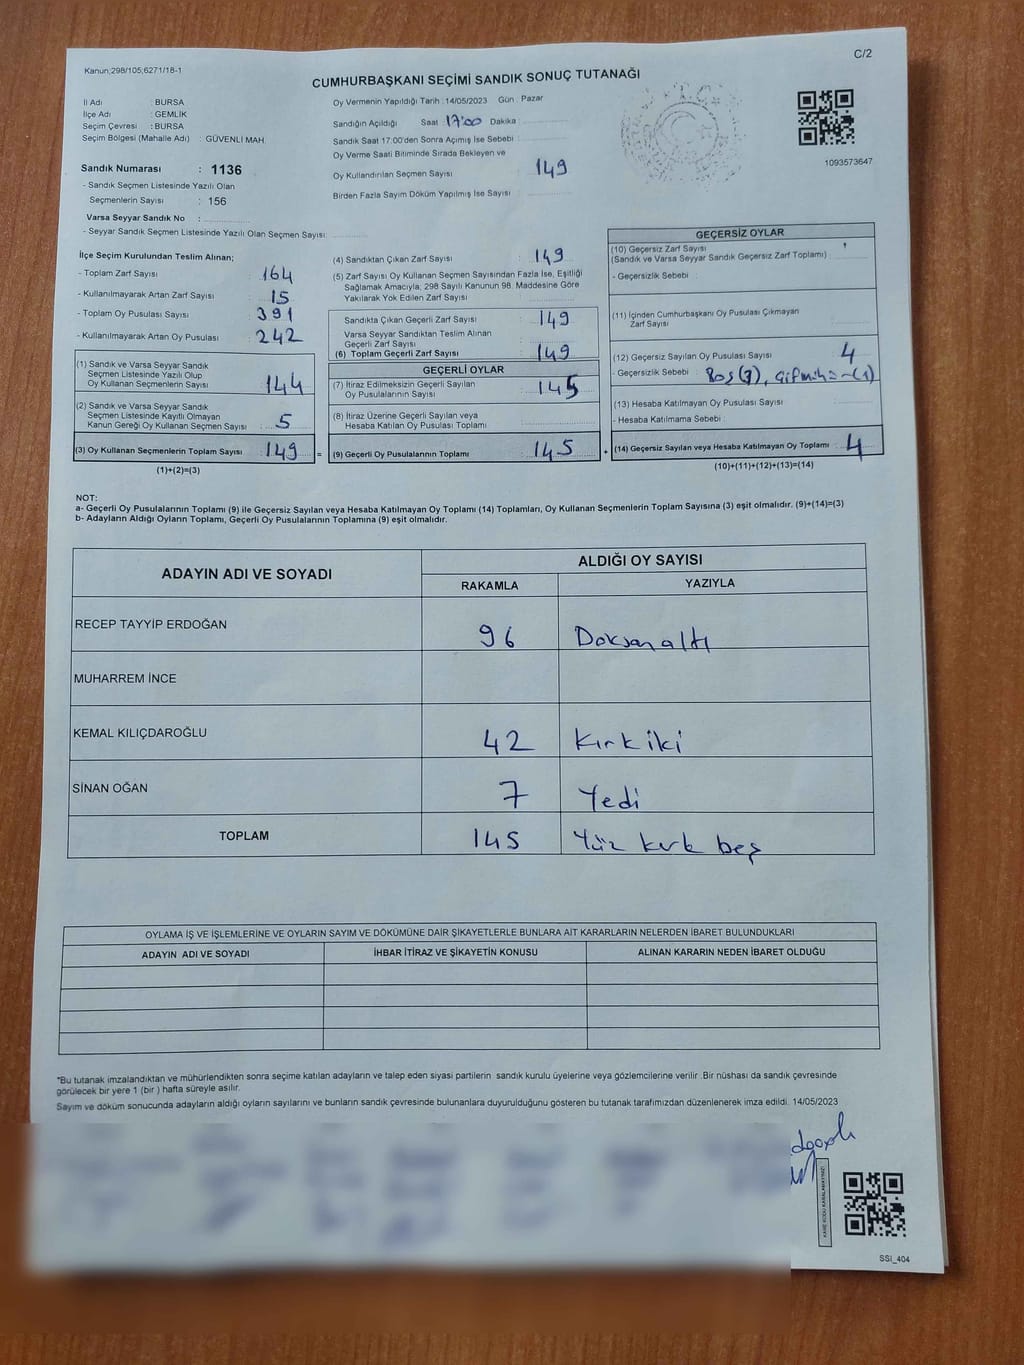 Kanun;298/105;6271/18-1
C/2
CUMHURBAŞKANI SEÇİMİ SANDIK SONUÇ TUTANAĞI
İl Adı : BURSA
İlçe Adı : GEMLİK
Seçim Çevresi : BURSA
Seçim Bölgesi (Mahalle Adı) : GÜVENLİ MAH.
Sandık Numarası : 1136
- Sandık Seçmen Listesinde Yazılı Olan
Seçmenlerin Sayısı : 156
Varsa Seyyar Sandık No :
- Seyyar Sandık Seçmen Listesinde Yazılı Olan Seçmen Sayısı:
Oy Vermenin Yapıldığı Tarih : 14/05/2023 Gün : Pazar
Sandığın Açıldığı Saat 17:00 Dakika
Sandık Saat 17:00'den Sonra Açımış İse Sebebi :
Oy Verme Saati Bitiminde Sırada Bekleyen ve
Oy Kullandırılan Seçmen Sayısı : 149
Birden Fazla Sayım Döküm Yapılmış İse Sayısı :
T.C.
1093573647
İlçe Seçim Kurulundan Teslim Alınan;
- Toplam Zarf Sayısı : 164
- Kullanılmayarak Artan Zarf Sayısı : 15
- Toplam Oy Pusulası Sayısı : 391
- Kullanılmayarak Artan Oy Pusulası : 242
(1) Sandık ve Varsa Seyyar Sandık
Seçmen Listesinde Yazılı Olup
Oy Kullanan Seçmenlerin Sayısı : 144
(2) Sandık ve Varsa Seyyar Sandık
Seçmen Listesinde Kayıtlı Olmayan
Kanun Gereği Oy Kullanan Seçmen Sayısı : 5
(3) Oy Kullanan Seçmenlerin Toplam Sayısı : 149 =
(1)+(2)=(3)
(4) Sandıktan Çıkan Zarf Sayısı : 149
(5) Zarf Sayısı Oy Kullanan Seçmen Sayısından Fazla İse, Eşitliği
Sağlamak Amacıyla; 298 Sayılı Kanunun 98. Maddesine Göre
Yakılarak Yok Edilen Zarf Sayısı :
Sandıkta Çıkan Geçerli Zarf Sayısı : 149
Varsa Seyyar Sandıktan Teslim Alınan
Geçerli Zarf Sayısı :
(6) Toplam Geçerli Zarf Sayısı : 149
GEÇERLİ OYLAR
(7) İtiraz Edilmeksizin Geçerli Sayılan
Oy Pusulasının Sayısı : 145
(8) İtiraz Üzerine Geçerli Sayılan veya
Hesaba Katılan Oy Pusulası Toplamı :
(9) Geçerli Oy Pusulalarının Toplamı : 145 +
GEÇERSİZ OYLAR
(10) Geçersiz Zarf Sayısı
(Sandık ve Varsa Seyyar Sandık Geçersiz Zarf Toplamı)
- Geçersizlik Sebebi :
(11) İçinden Cumhurbaşkanı Oy Pusulası Çıkmayan
Zarf Sayısı :
(12) Geçersiz Sayılan Oy Pusulası Sayısı : 4
- Geçersizlik Sebebi : Boş(3), Çift mühür(1)
(13) Hesaba Katılmayan Oy Pusulası Sayısı :
- Hesaba Katılmama Sebebi :
(14) Geçersiz Sayılan veya Hesaba Katılmayan Oy Toplamı : 4
(10)+(11)+(12)+(13)=(14)
NOT:
a- Geçerli Oy Pusulalarının Toplamı (9) ile Geçersiz Sayılan veya Hesaba Katılmayan Oy Toplamı (14) Toplamları, Oy Kullanan Seçmenlerin Toplam Sayısına (3) eşit olmalıdır. (9)+(14)=(3)
b- Adayların Aldığı Oyların Toplamı, Geçerli Oy Pusulalarının Toplamına (9) eşit olmalıdır.
ADAYIN ADI VE SOYADI
ALDIĞI OY SAYISI
RAKAMLA YAZIYLA
RECEP TAYYİP ERDOĞAN 96 Doksan altı
MUHARREM İNCE
KEMAL KILIÇDAROĞLU 42 Kırk iki
SİNAN OĞAN 7 Yedi
TOPLAM 145 Yüz kırk beş
OYLAMA İŞ VE İŞLEMLERİNE VE OYLARIN SAYIM VE DÖKÜMÜNE DAİR ŞİKAYETLERLE BUNLARA AİT KARARLARIN NELERDEN İBARET BULUNDUKLARI
ADAYIN ADI VE SOYADI İHBAR İTİRAZ VE ŞİKAYETİN KONUSU ALINAN KARARIN NEDEN İBARET OLDUĞU
*Bu tutanak imzalandıktan ve mühürlendikten sonra seçime katılan adayların ve talep eden siyasi partilerin sandık kurulu üyelerine veya gözlemcilerine verilir .Bir nüshası da sandık çevresinde
görülecek bir yere 1 (bir ) hafta süreyle asılır.
Sayım ve döküm sonucunda adayların aldığı oyların sayılarını ve bunların sandık çevresinde bulunanlara duyurulduğunu gösteren bu tutanak tarafımızdan düzenlenerek imza edildi. 14/05/2023
KARE KODU KARALAMAYINIZ!
SSİ_404